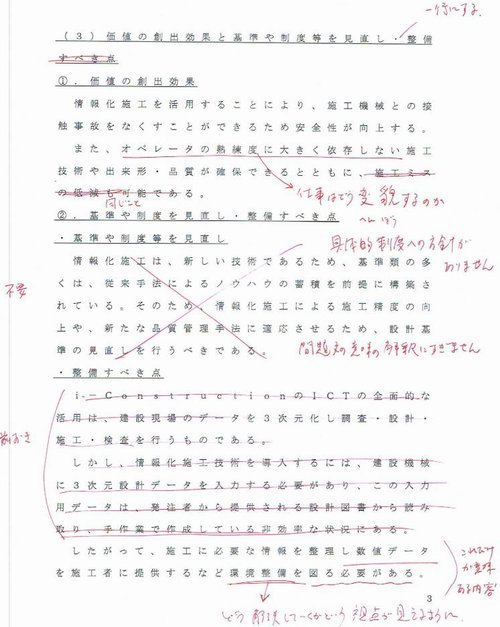 一行にする
(3) 価値の創出効果と基準や制度等を見直し・整備
すべき点
①.価値の創出効果
情報化施工を活用することにより、施工機械との接
触事故をなくすことができるため安全性が向上する。
また、オペレータの熟練度に大きく依存しない施工
技術や出来形・品質が確保できるとともに、施工ミス
の低減も可能である。
同じこと
仕事はどう変貌するのか
へんぼう
②.基準や制度を見直し・整備すべき点
・基準や制度等を見直し
具体的制度への方針が
ありません
情報化施工は、新しい技術であるため、基準類の多
くは、従来手法によるノウハウの蓄積を前提に構築さ
れている。そのため、情報化施工による施工精度の向
上や、新たな品質管理手法に適応させるため、設計基
準の見直しを行うべきである。
不要
問題の意味の解釈にすぎません
・整備すべき点
i-ConstructionのICTの全面的な
活用は、建設現場のデータを3次元化し調査・設計・
施工・検査を行うものである。
前おき
しかし、情報化施工技術を導入するには、建設機械
に3次元設計データを入力する必要があり、この入力
用データは、発注者から提供される設計図書から読み
取り、手作業で作成している非効率な状況にある。
したがって、施工に必要な情報を整理し数値データ
を施工者に提供するなど環境整備を図る必要がある。
これだけ
が意味
ある内容
3
どう解決していくかという視点が見えるように